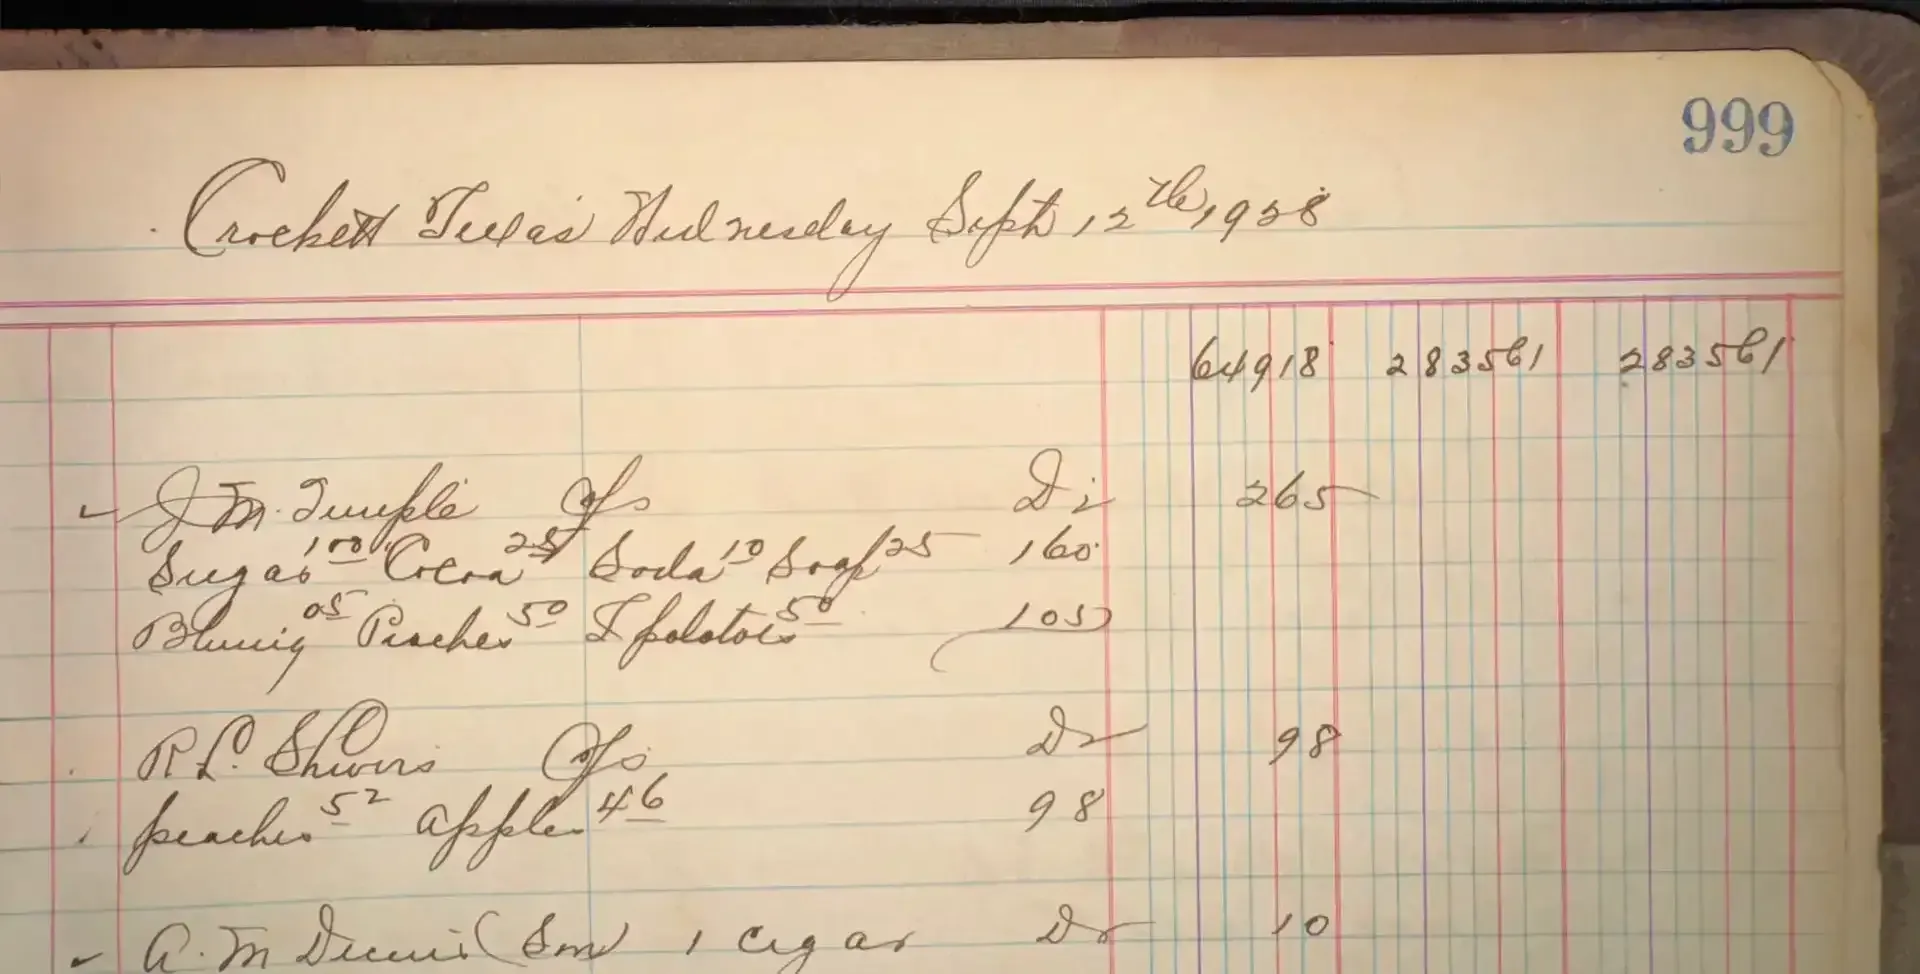 999
Crockett Texas Wednesday Sept 12th, 1928
64918 283561 283561
J M. Temple Dr 265
Sugar 100 Cocoa 25 Soda 10 Soap 25 160
Bluing 05 Peaches 50 I potatoes 50 105
R L. Shivers Dr 98
peaches 52 apples 46 98
A. M Dennis (Son) 1 cigar Dr 10